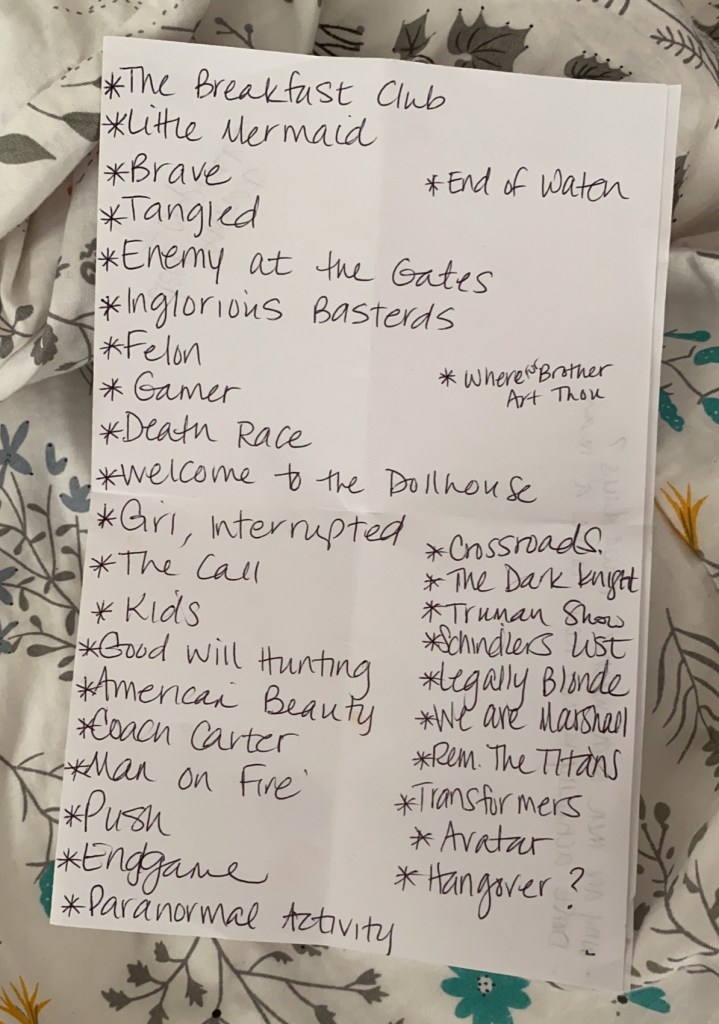 *The Breakfast Club
*Little Mermaid
*Brave
*Tangled
*Enemy at the Gates
*Inglorious Basterds
*Felon
* Gamer
*Death Race
*Welcome to the Dollhouse
*Girl, Interrupted
*The Call
* Kids
*Good Will Hunting
*American Beauty
*Coach Carter
*Man on Fire
*Push
*Endgame
*Paranormal Activity
*End of Watch
* Where Brother
Art Thou
*Crossroads.
*The Dark Knight
*Truman Show
*Schindlers List
*Legally Blonde
*We are Marshall
*Rem. The Titans
*Transformers
* Avatar
* Hangover ?